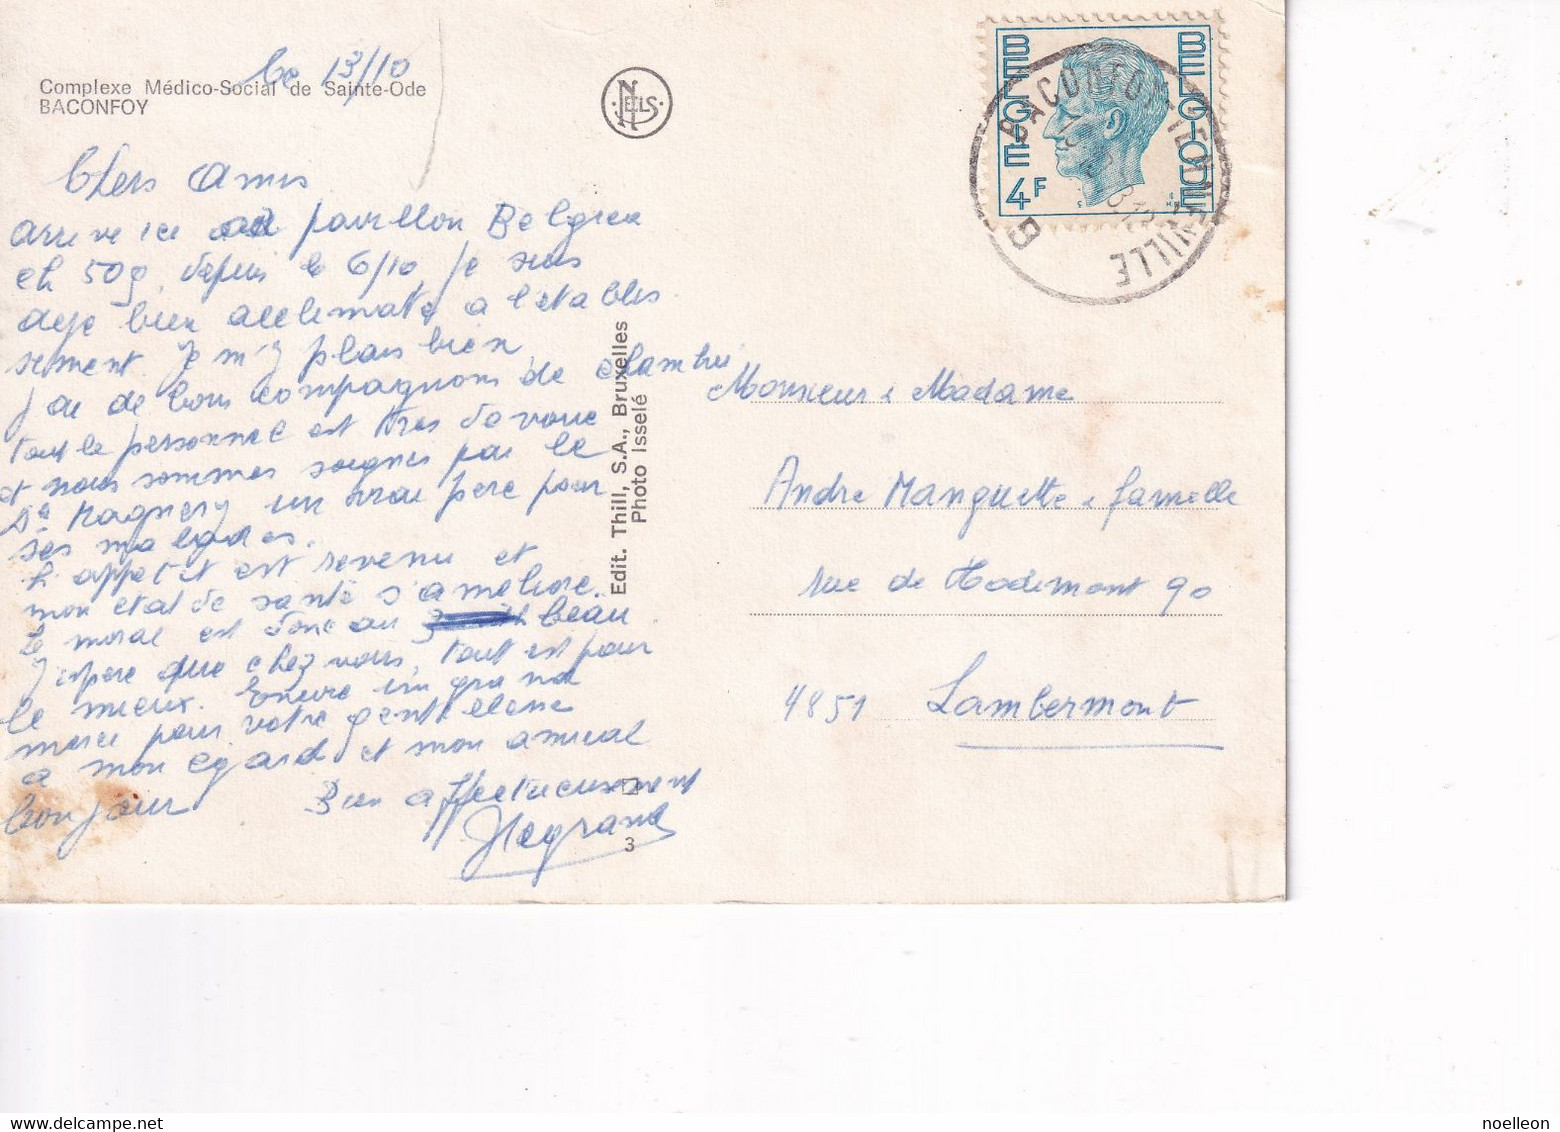 Complexe Médico-Social de Sainte-Ode
BACONFOY
le 13/10
NELS
BELGIE BELGIQUE
4F
BACONFOY-TENNEVILLE
B
Chers Amis
arrive ici au pavillon Belgica
ch 509, depuis le 6/10, je suis
deje bien acclimaté a l'etablis
sement. Je m'y plais bien
J'ai de bons compagnons de chambre
tout le personnel est très dévoué
et nous sommes soignés par le
Dr Magnery, un vrai père pour
ses malades.
L'appetit est revenu et
mon etat de santé s'améliore.
Le moral est donc au beau
J'espere que chez vous, tout est pour
le mieux. Encore un grand
merci pour votre gentillesse
a mon egard et mon amical
bonjour Bien affectueusement
JLegrand
Edit. Thill, S.A., Bruxelles
Photo Isselé
3
Monsieur & Madame
Andre Manguette & famille
rue de Hodimont 90
4851 Lambermont
noelleon